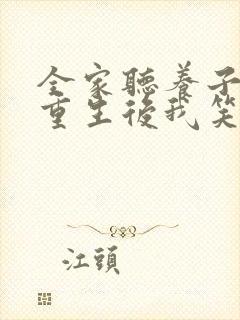 全家聽養子
重生後我笑
江頭